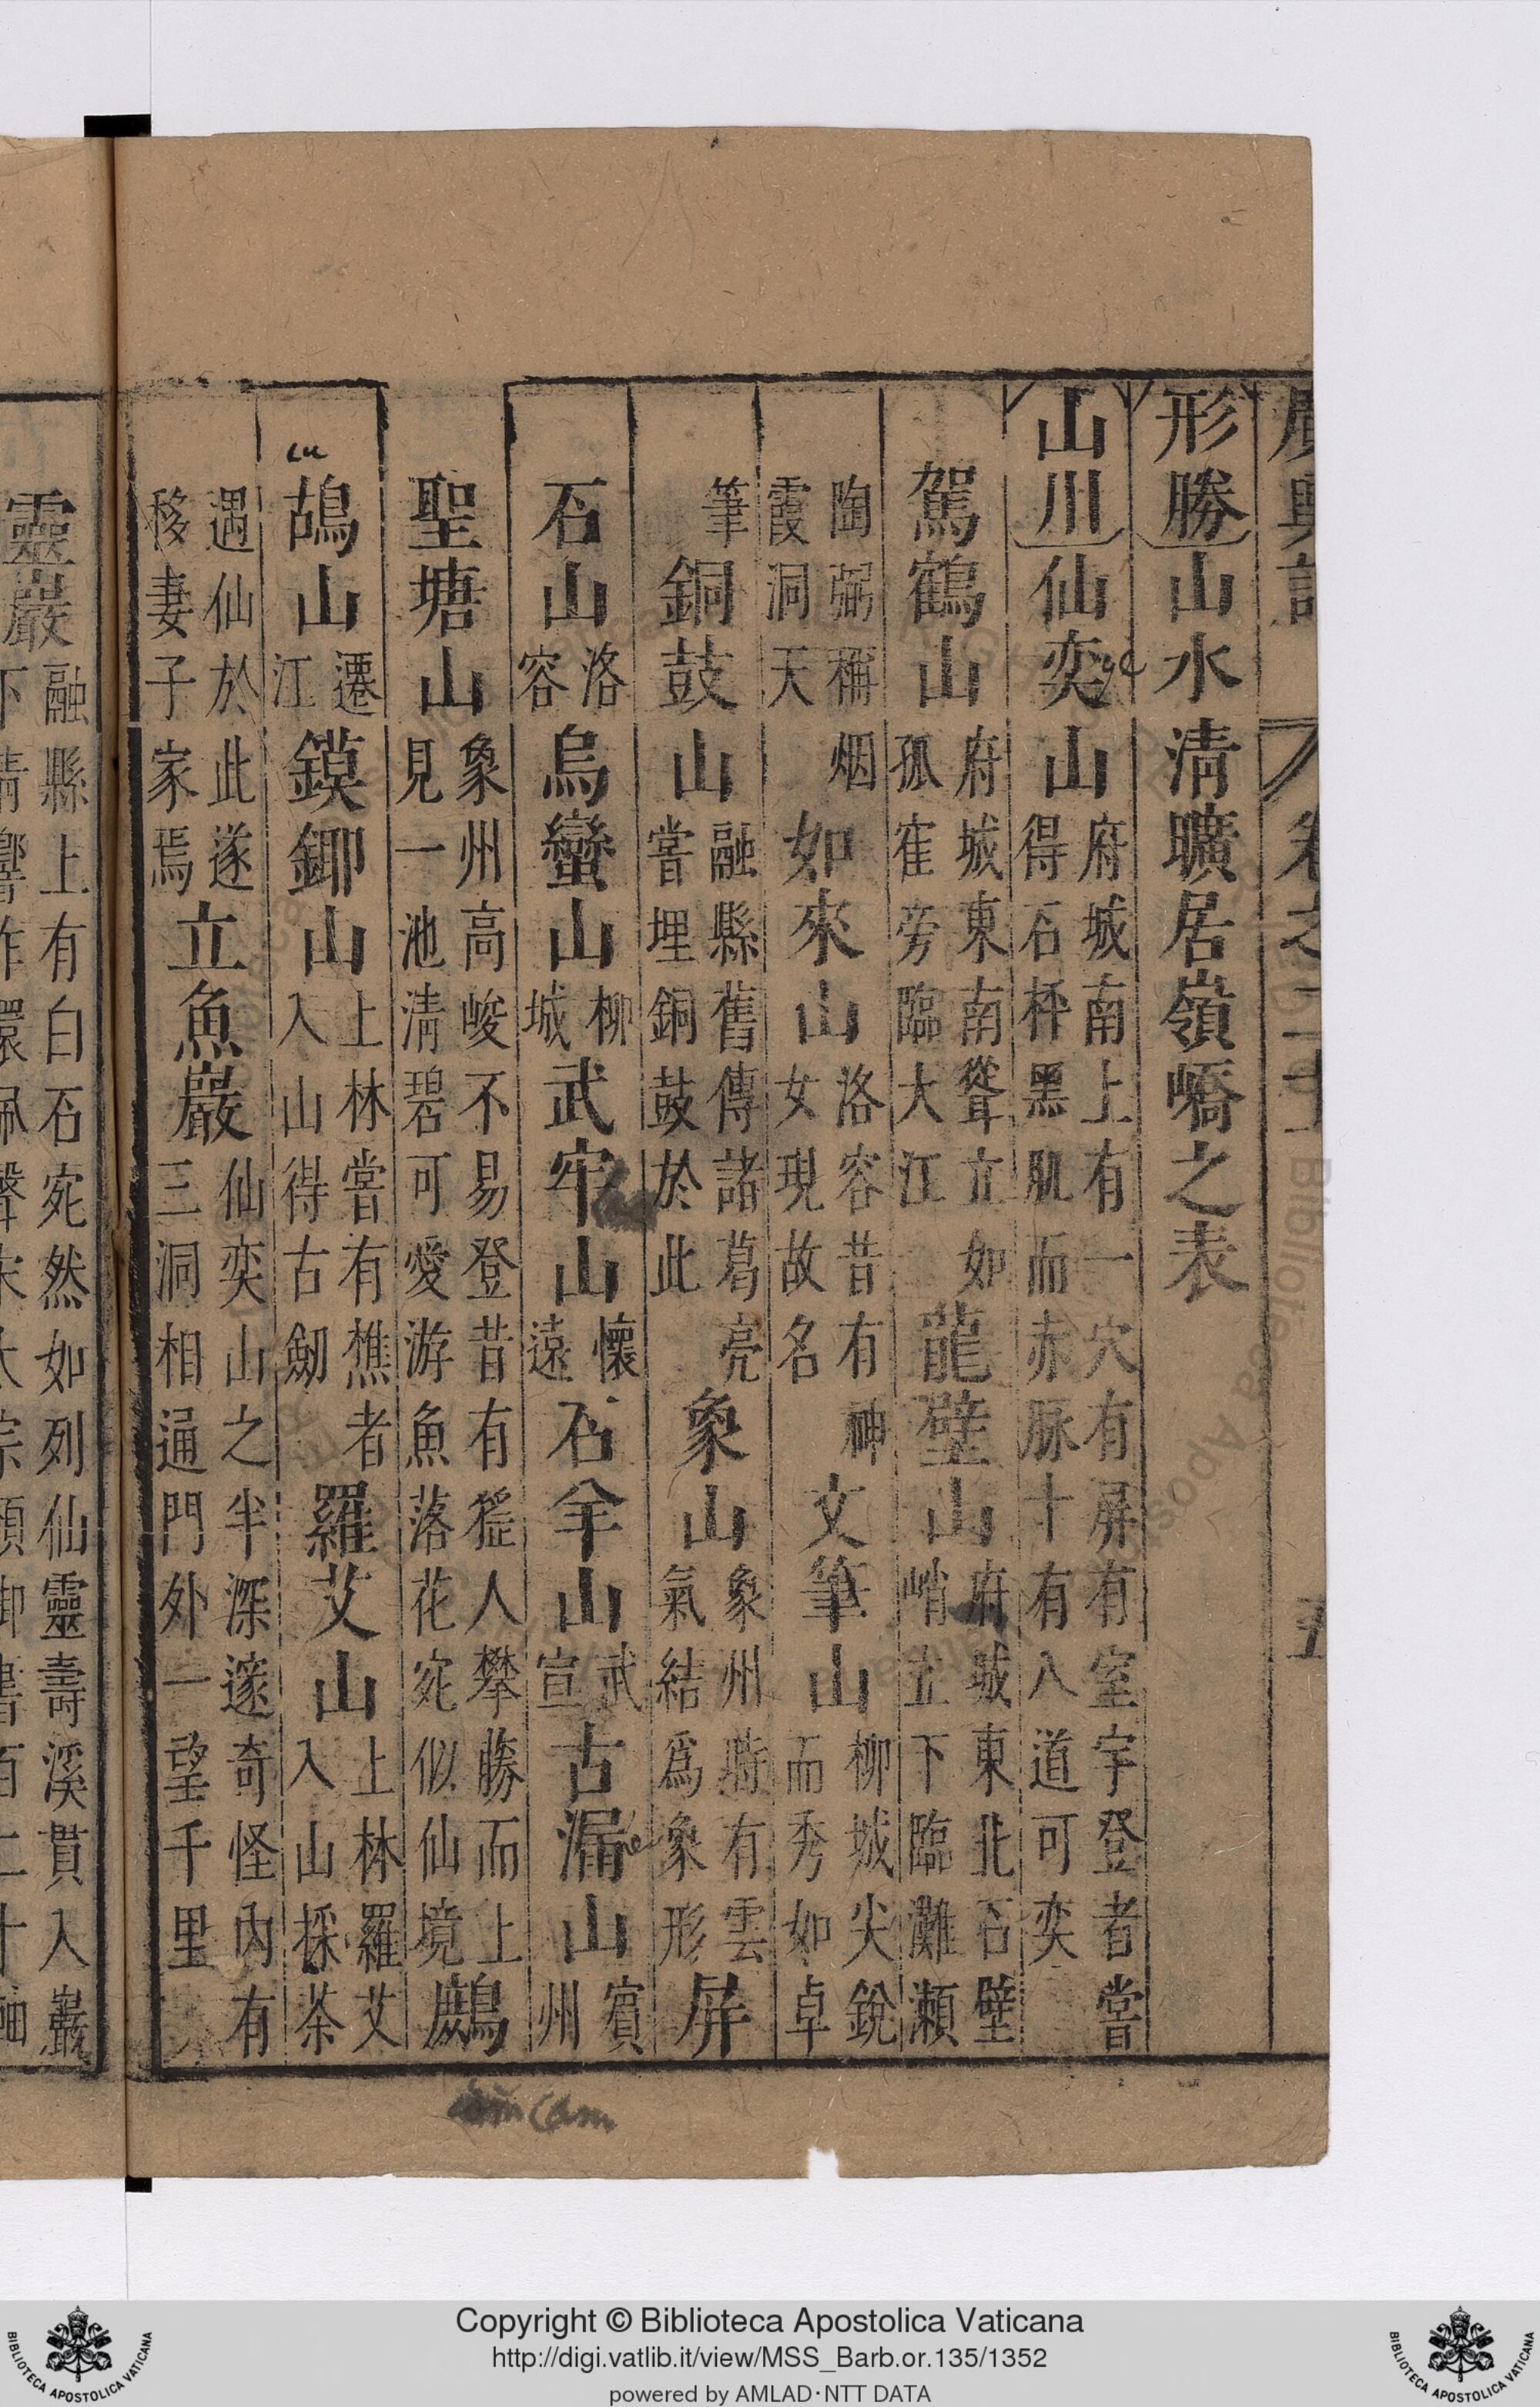 廣輿記 卷之二十 五
形勝 山水清曠居嶺嶠之表
山川 仙奕山 府城南上有一穴有屏有室宇登者嘗得石枰黑肌而赤脉十有八道可奕
駕鶴山 府城東南聳立如孤隺旁臨大江 龍壁山 府城東北石壁峭立下臨灘瀨
陶弼稱烟霞洞天 如來山 洛容昔有神女現故名 文筆山 柳城尖銳而秀如卓
筆 銅鼓山 融縣舊傳諸葛亮嘗埋銅鼓於此 象山 象州時有雲氣結爲象形 屏
石山 洛容 烏蠻山 柳城 武牢山 懷遠 石羊山 武宣 古漏山 賓州
聖塘山 象州高峻不易登昔有猺人攀勝而上見一池清碧可愛游魚落花宛似仙境 鷓
鴣山 遷江 鏌鎁山 上林嘗有樵者入山得古劒 羅艾山 上林羅艾入山採茶
遇仙於此遂移妻子家焉 立魚巖 仙奕山之半深邃奇怪內有三洞相通門外一望千里
靈巖 融縣上有白石宛然如列仙靈壽溪貫入巖
Copyright © Biblioteca Apostolica Vaticana
http://digi.vatlib.it/view/MSS_Barb.or.135/1352
powered by AMLAD·NTT DATA
BIBLIOTECA APOSTOLICA VATICANA
BIBLIOTECA APOSTOLICA VATICANA